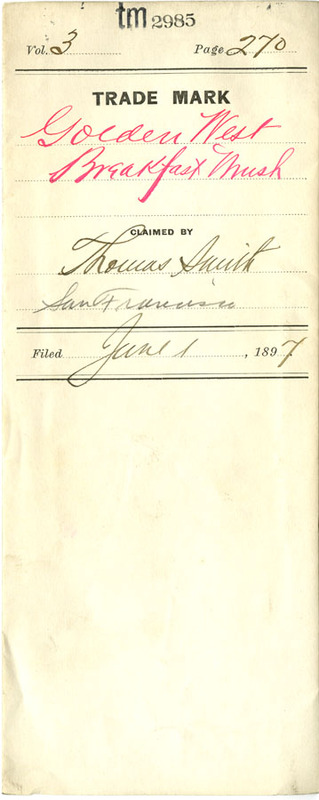 tm 2985
Vol. 3 Page 270
TRADE MARK
Golden West
Breakfast Mush
CLAIMED BY
Thomas Smith
San Francisco
Filed June 1, 1897